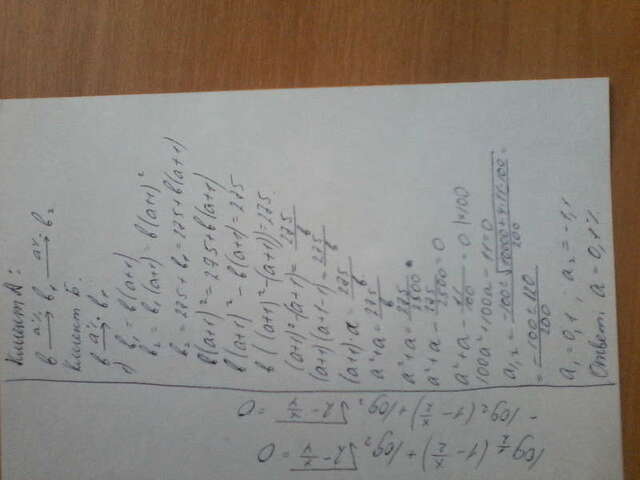 Клиент А:
b →a% b₁ →a% b₂
Клиент Б.
b →a% b₁
1) b₁ = b(a+1)
b₂ = b₁(a+1) = b(a+1)²
b₂ = 275 + b₁ = 275 + b(a+1)
b(a+1)² = 275 + b(a+1)
b(a+1)² - b(a+1) = 275
b((a+1)² - (a+1)) = 275.
(a+1)² - (a+1) = 275/b
(a+1)(a+1-1) = 275/b
(a+1)·a = 275/b
a² + a = 275/b
a² + a = 275/2500
a² + a - 275/2500 = 0
a² + a - 11/100 = 0 |·100
100a² + 100a - 11 = 0
a₁,₂ = (-100 ± √(10000+4·11·100))/200 =
= (-100 ± 120)/200
a₁ = 0,1 ; a₂ = -1,1
Ответ: a = 0,1%